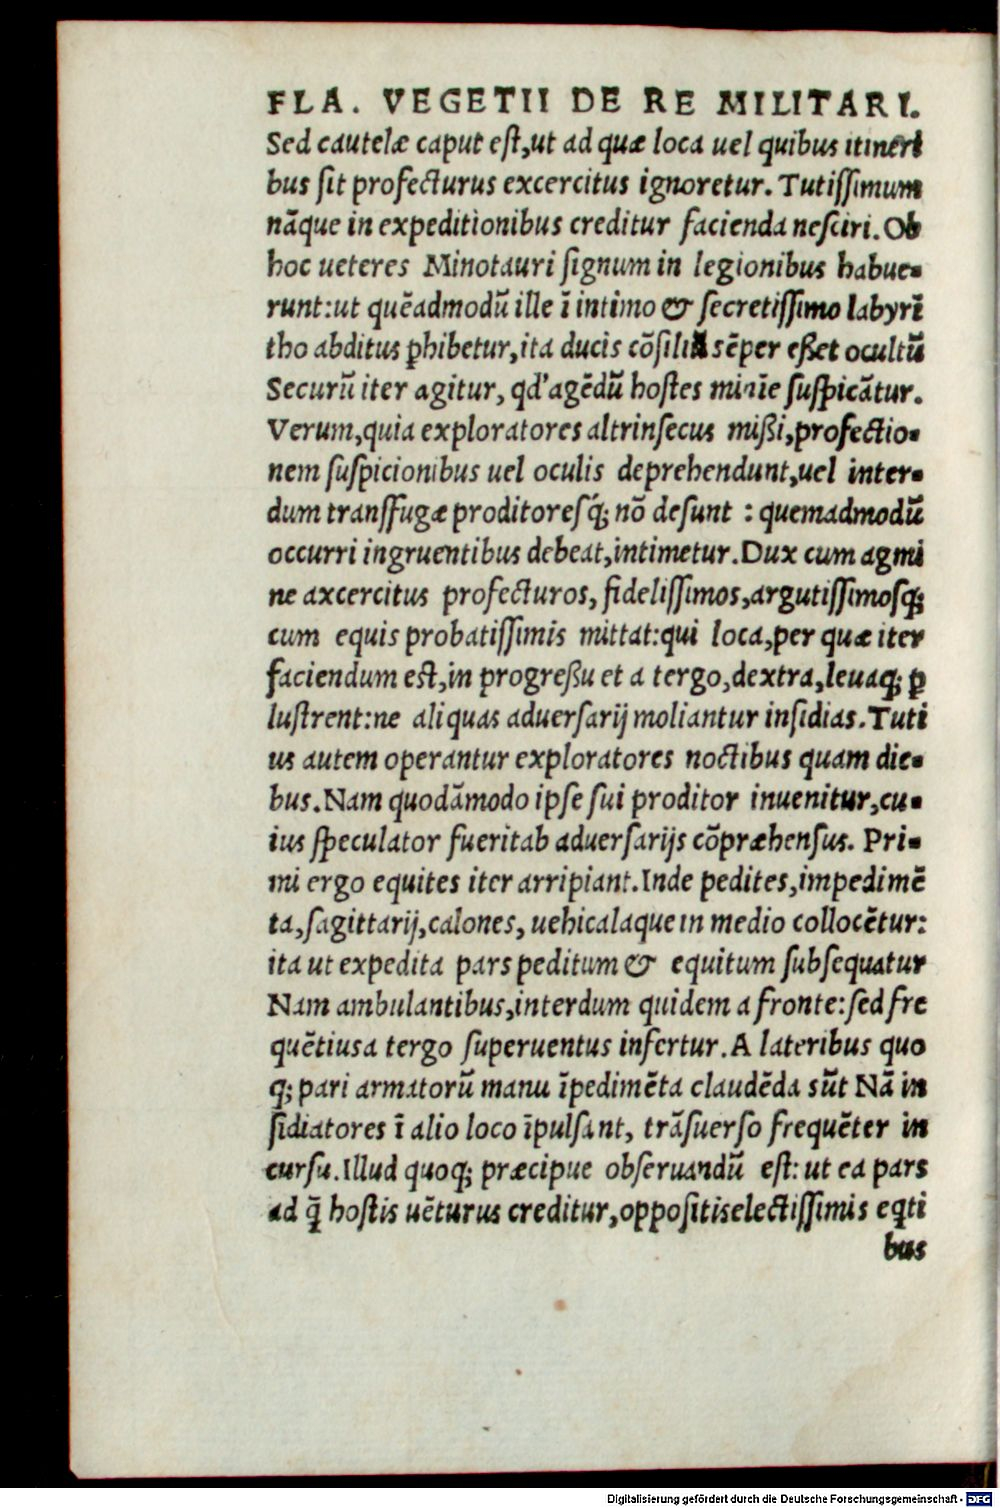 FLA. VEGETII DE RE MILITARI.
Sed cautelæ caput est,ut ad quæ loca uel quibus itineri
bus sit profecturus excercitus ignoretur. Tutissimum
nãque in expeditionibus creditur facienda nesciri. Ob
hoc ueteres Minotauri signum in legionibus habue-
runt:ut quẽadmodũ ille ĩ intimo & secretissimo labyrĩ
tho abditus ꝓhibetur,ita ducis cõsiliũ sẽper eßet ocultũ
Securũ iter agitur, qd' agẽdũ hostes minĩe suspicãtur.
Verum,quia exploratores altrinsecus mißi,profectio-
nem suspicionibus uel oculis deprehendunt,uel inter-
dum transfugæ proditoresq́; nõ desunt : quemadmodũ
occurri ingruentibus debeat,intimetur.Dux cum agmi
ne axcercitus profecturos, fidelissimos,argutissimosq́;
cum equis probatissimis mittat:qui loca,per quæ iter
faciendum est,in progreßu et a tergo,dextra,leuaq; ꝑ
lustrent:ne aliquas aduersarij moliantur insidias.Tuti
us autem operantur exploratores noctibus quam die-
bus.Nam quodãmodo ipse sui proditor inuenitur,cu-
ius speculator fuerit ab aduersarijs cõpræhensus. Pri-
mi ergo equites iter arripiant.Inde pedites,impedimẽ
ta,sagittarij,calones, uehicalaque in medio collocẽtur:
ita ut expedita pars peditum & equitum subsequatur
Nam ambulantibus,interdum quidem a fronte:sed fre
quẽtius a tergo superuentus infertur.A lateribus quo
q; pari armatorũ manu ĩpedimẽta claudẽda sũt Nã in
sidiatores ĩ alio loco ĩpulsant, trãsuerso frequẽter in
cursu.Illud quoq; præcipue obseruandũ est: ut ea pars
ad q̃ hostis uẽturus creditur,oppositis electissimis eqti
bus
Digitalisierung gefördert durch die Deutsche Forschungsgemeinschaft - DFG